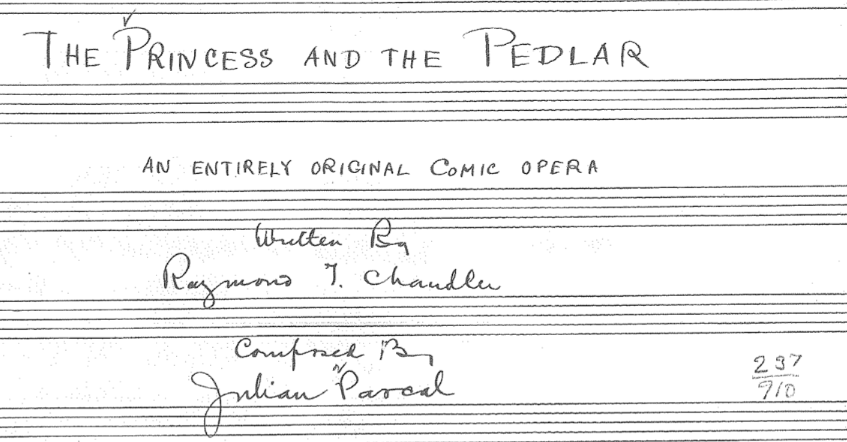 THE PRINCESS AND THE PEDLAR
AN ENTIRELY ORIGINAL COMIC OPERA
Written By
Raymond T. Chandler
Composed By
Julian Pascal
237
910